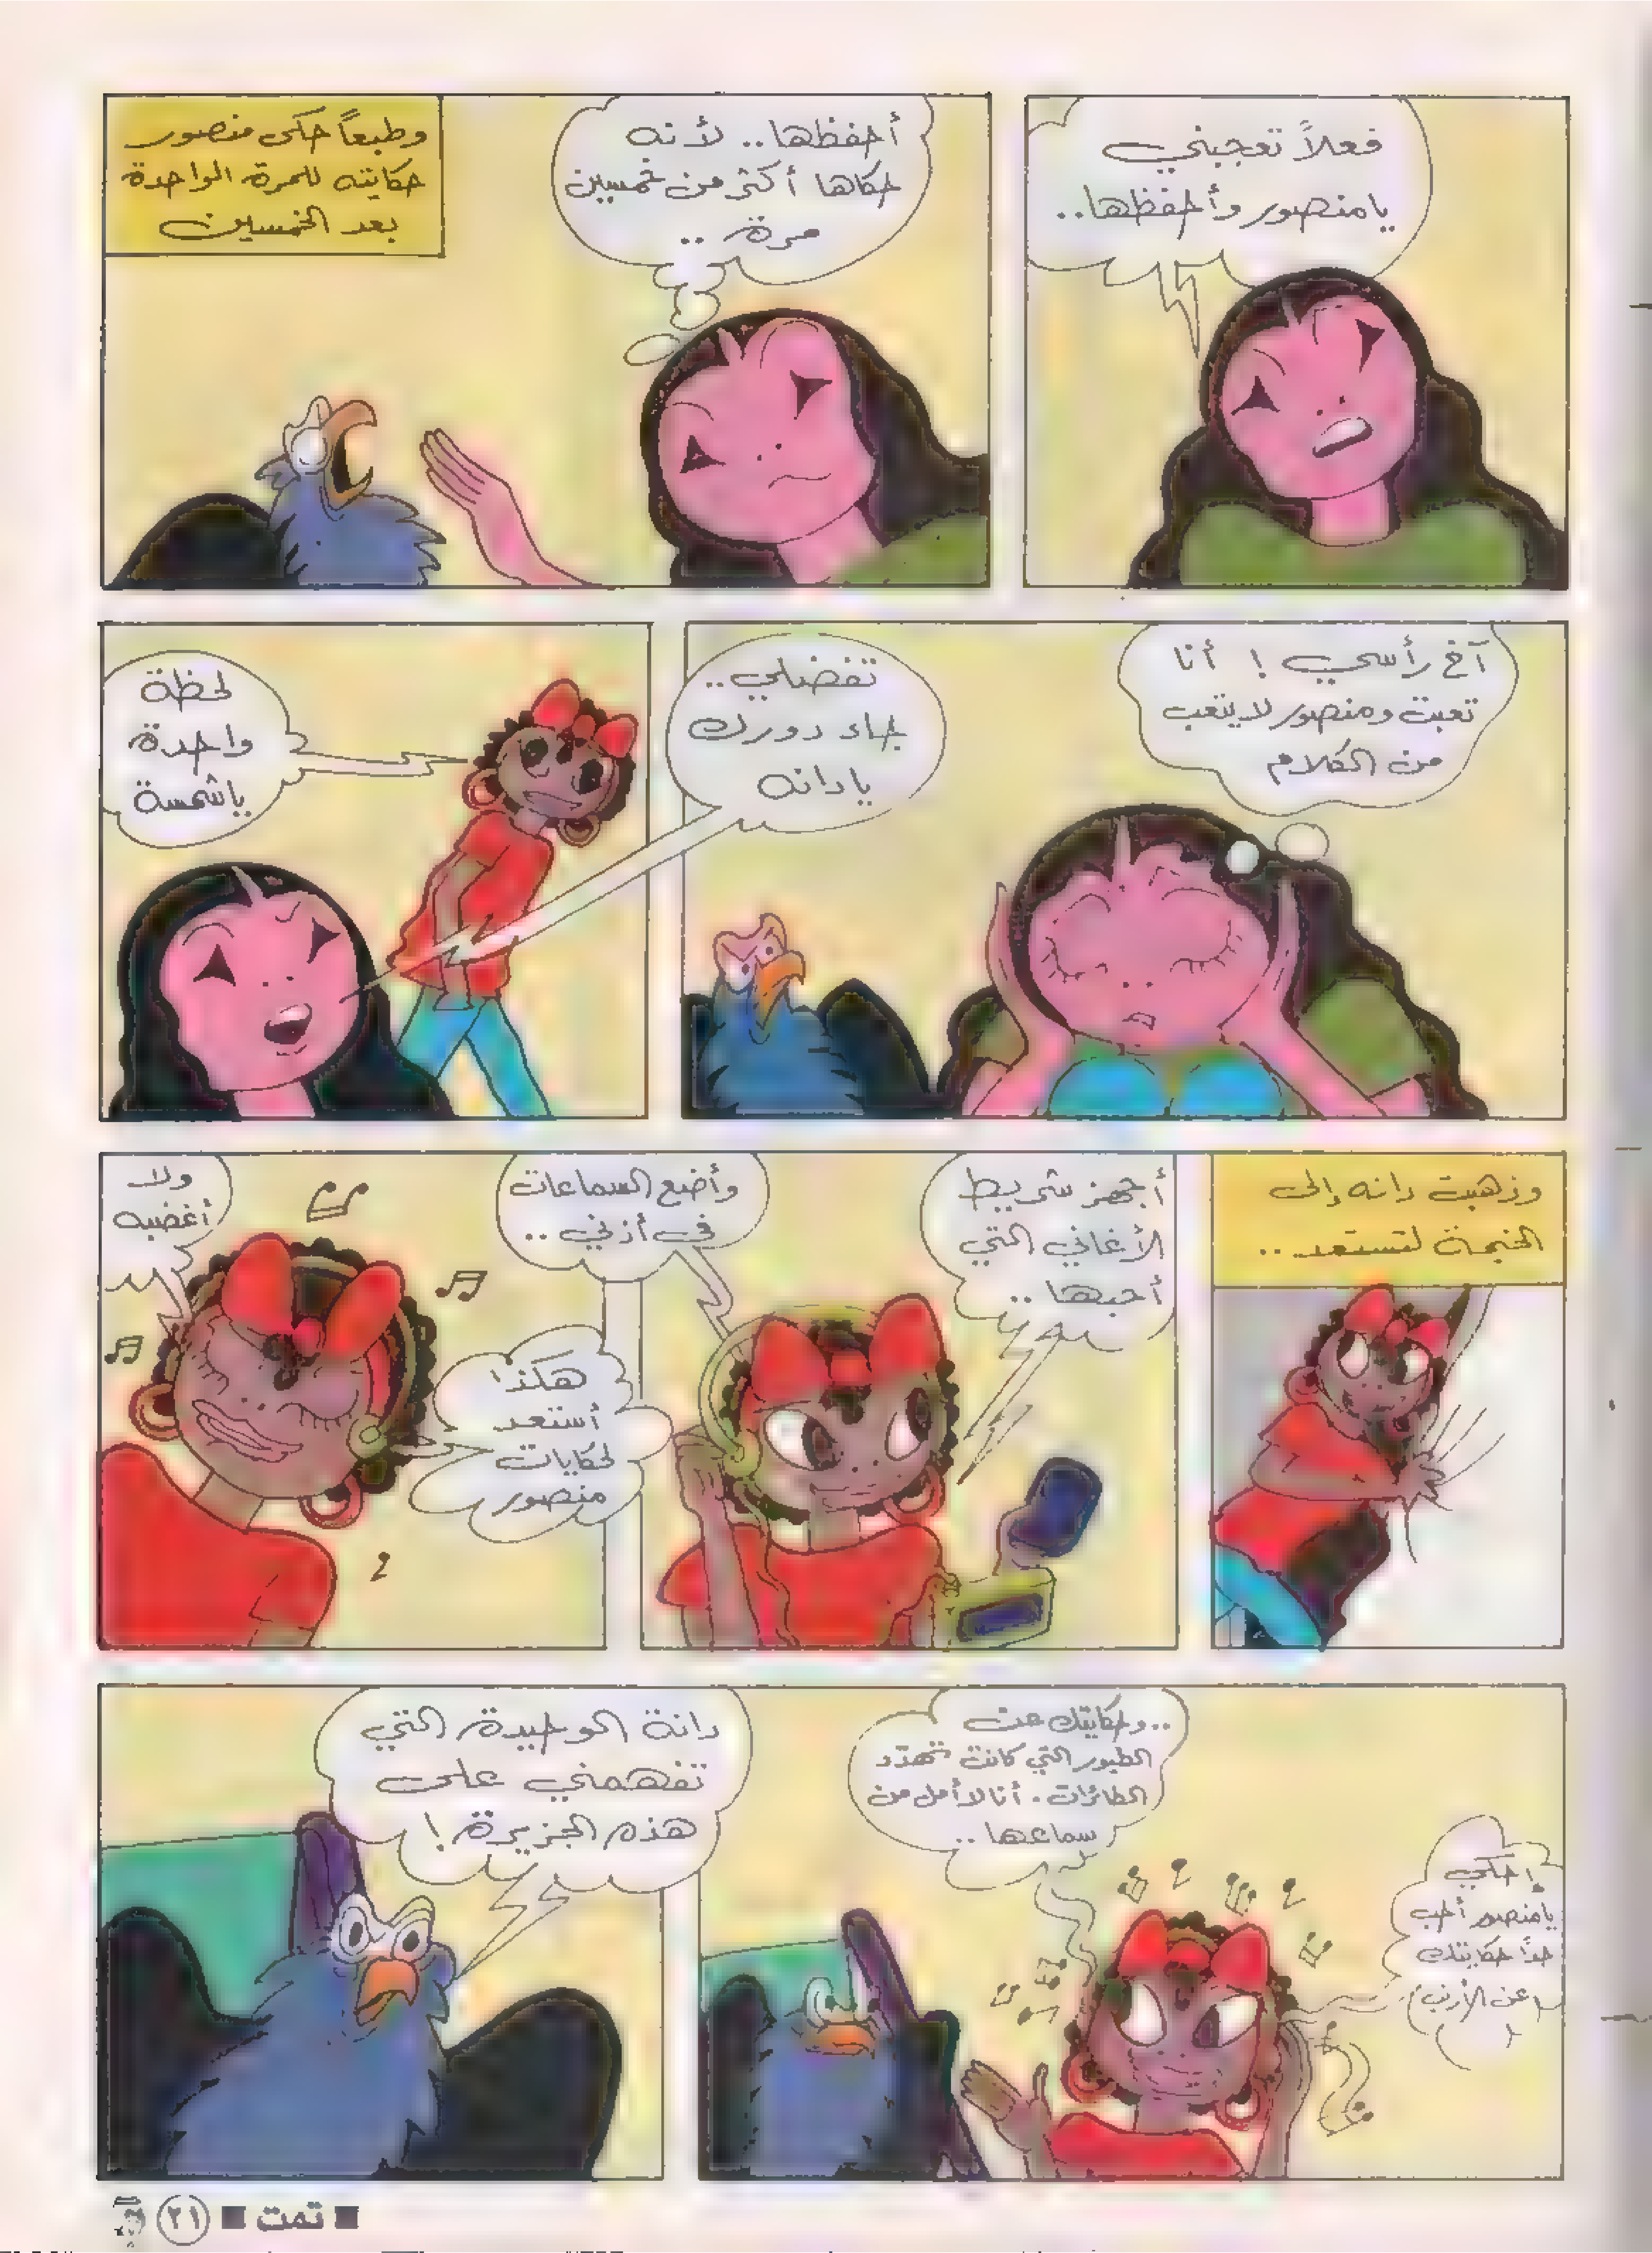 فعلاً تعجبني
يامنصور وأحفظها..
أحفظها.. لأنه
حكاها أكثر من خمسين
مرة ..
وطبعاً حكى منصور
حكايته للمرة الواحدة
بعد الخمسين
آخ رأسي ! أنا
تعبت ومنصور لا يتعب
من الكلام
تفضلي..
جاء دورك
يا دانه
لحظة
واحدة
ياشمسة
وذهبت دانه إلى
الخيمة لتستعد..
أجهز شريط
الأغاني التي
أحبها ..
وأضع السماعات
في أذني ..
ولا
أغضبه
هكذا
أستعد
لحكايات
منصور
إحكي
يامنصور أحب
جداً حكايتك
عن الأرنب
..وحكايتك عن
الطيور التي كانت تهدد
الطائرات. أنا لا أمل من
سماعها ..
دانة الوحيدة التي
تفهمني على
هذه الجزيرة !
■ تمت ■ ٢١